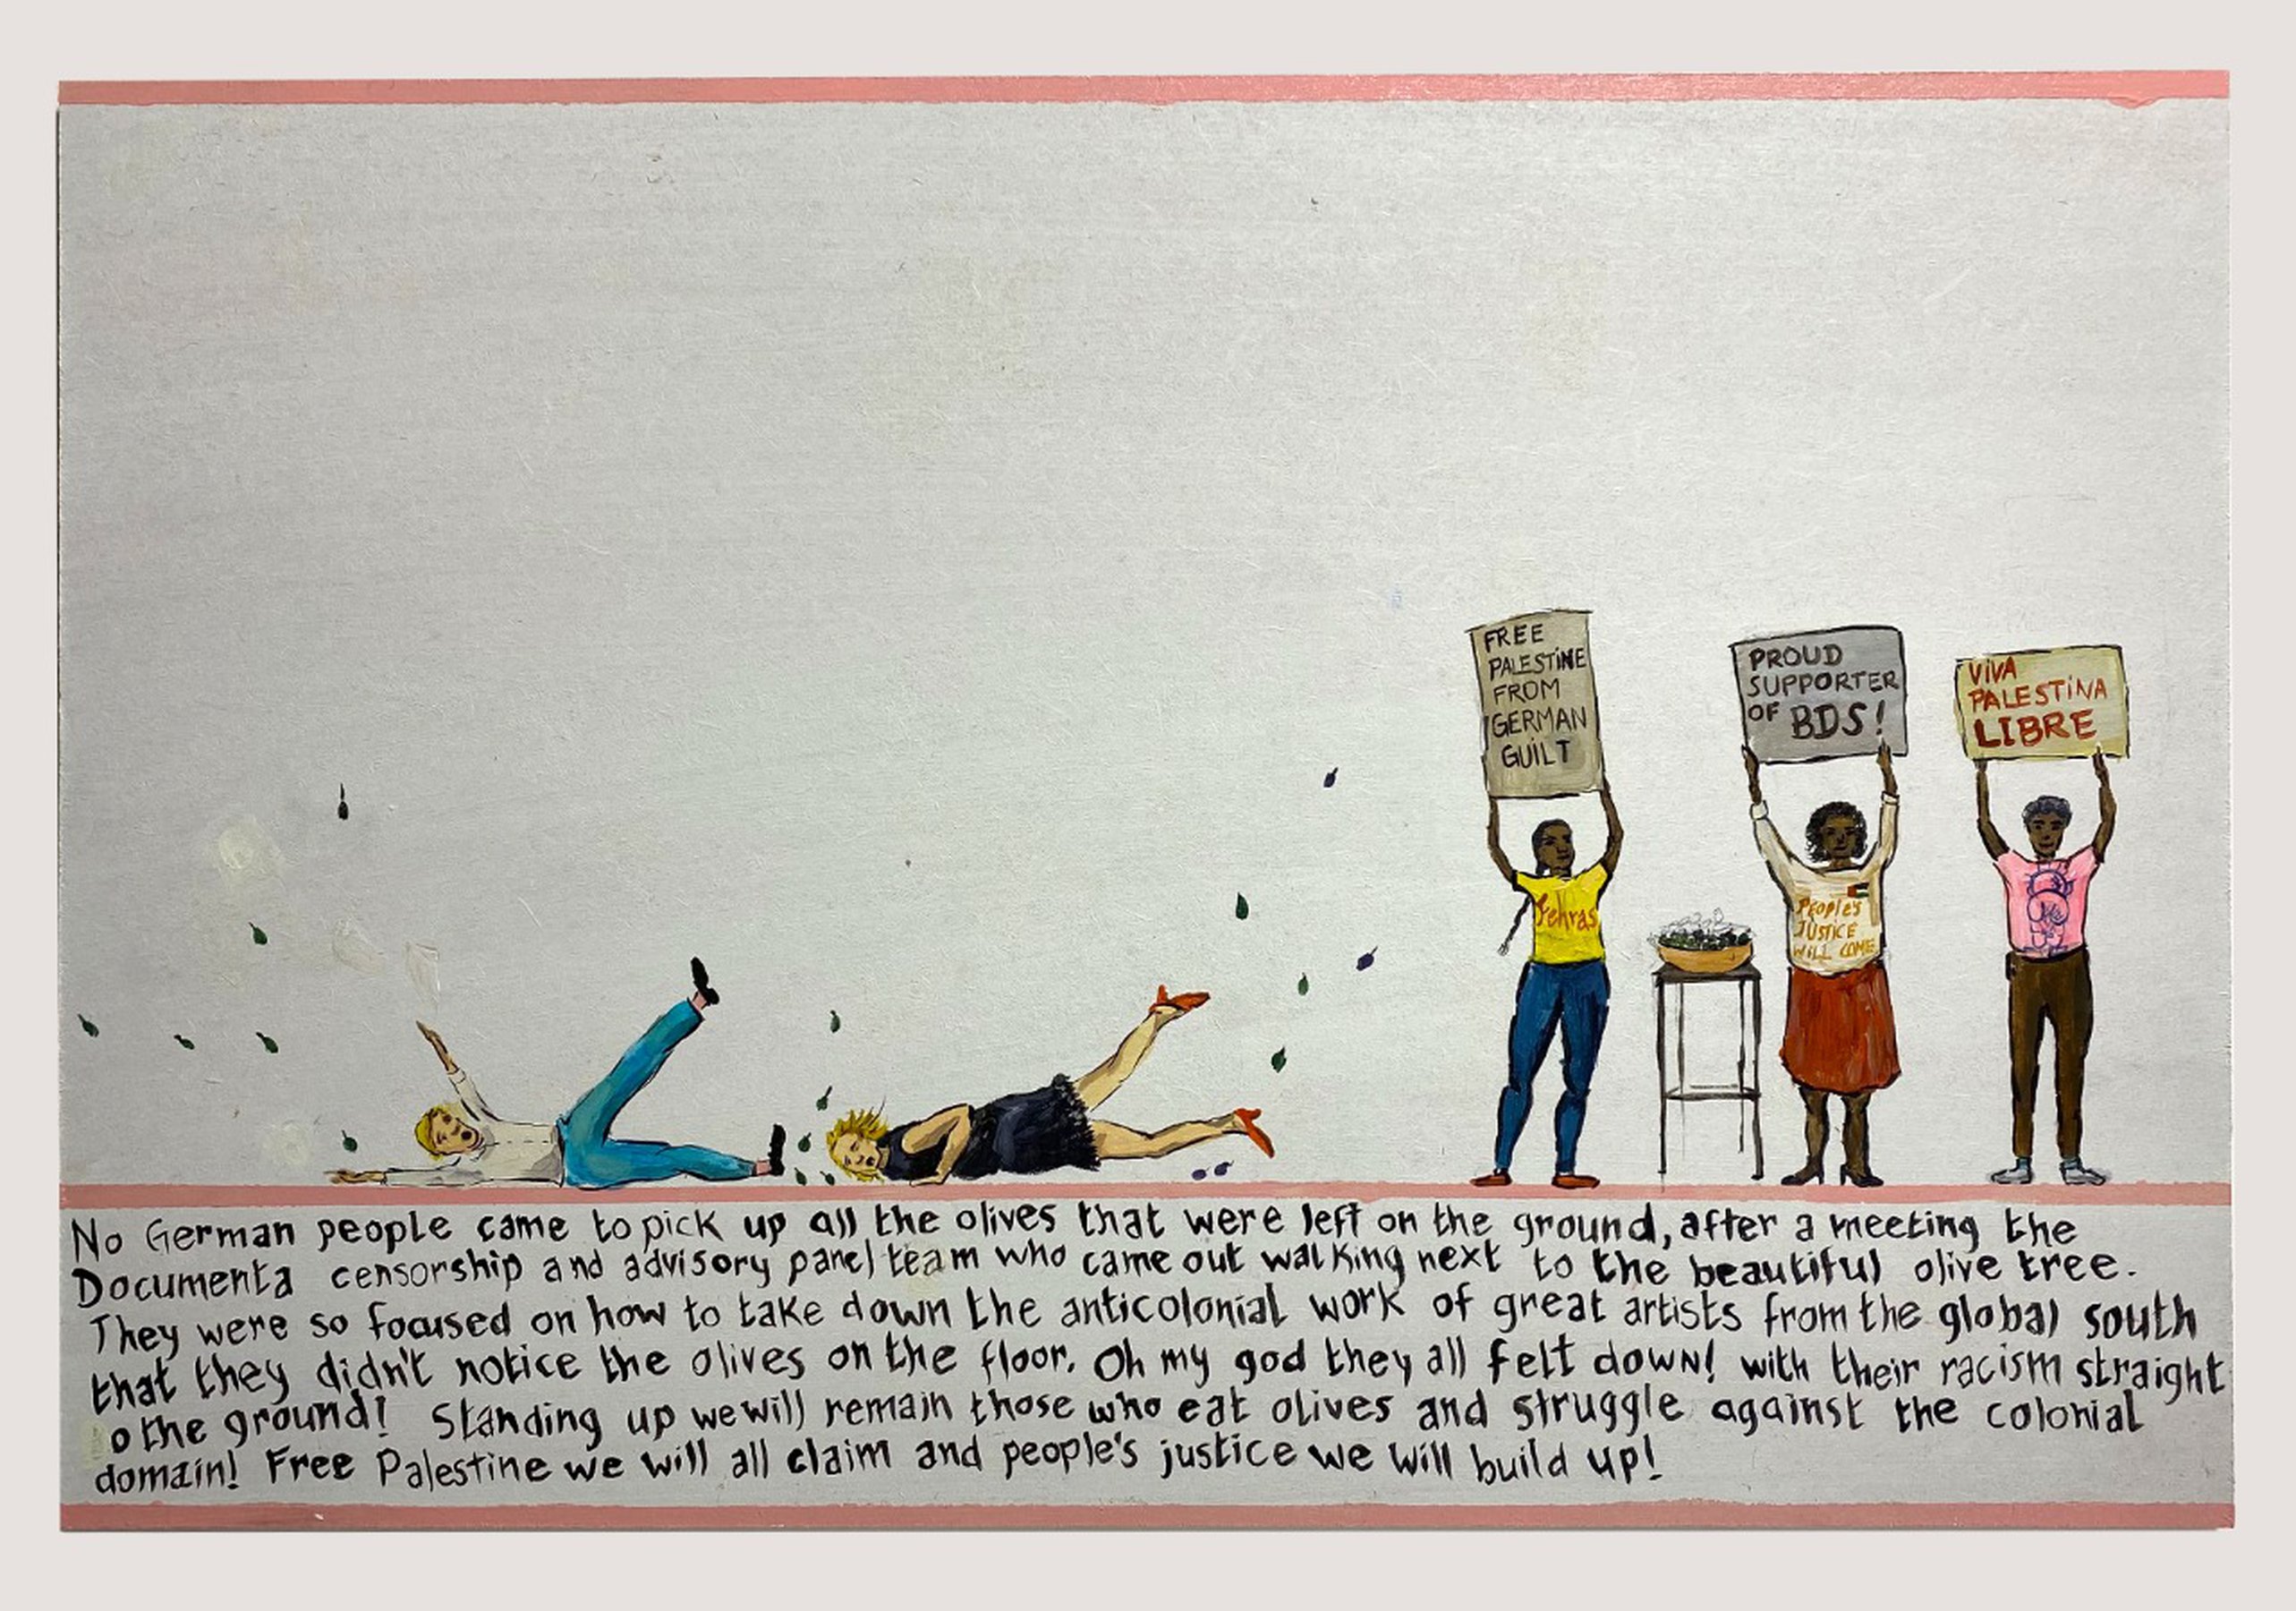 FREE
PALESTINE
FROM
GERMAN
GUILT
PROUD
SUPPORTER
OF BDS!
VIVA
PALESTINA
LIBRE
Fehras
PEOPle's
JUSTICE
WILL COME
No German people came to pick up all the olives that were left on the ground, after a meeting the
Documenta censorship and advisory panel team who came out walking next to the beautiful olive tree.
They were so focused on how to take down the anticolonial work of great artists from the global south
that they didn't notice the olives on the floor. Oh my god they all felt down! with their racism straight
o the ground! Standing up we will remain those who eat olives and struggle against the colonial
domain! Free Palestine we will all claim and people's justice we will build up!